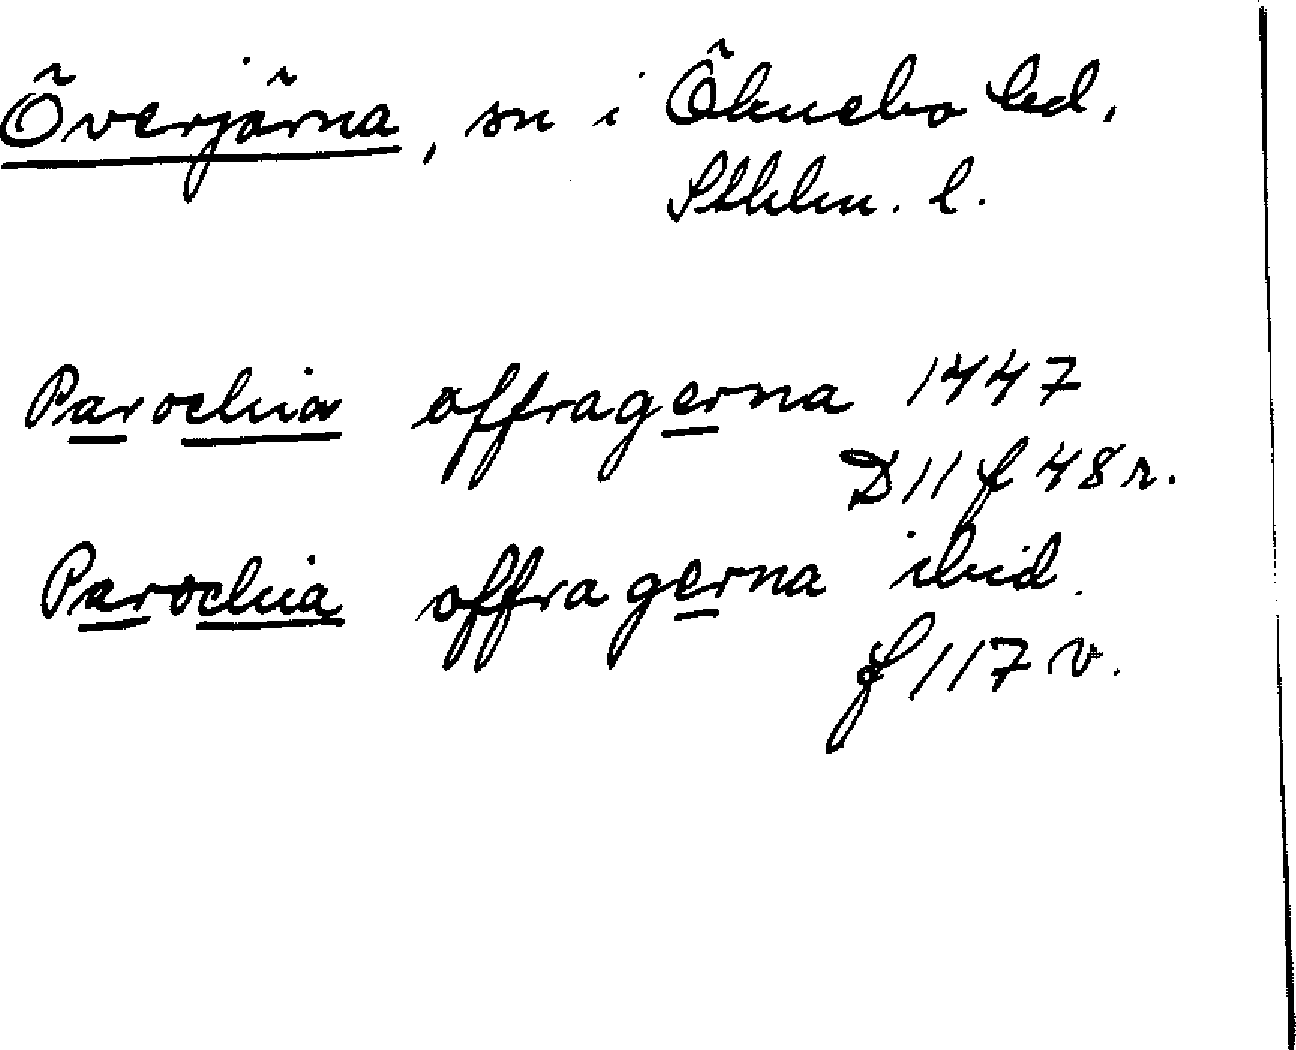 Överjärna, sn i Öknebo hd,
Sthlm. l.
Parochia offragerna 1447
D 11 f 48 r.
Parochia offragerna ibid.
f 117 v.